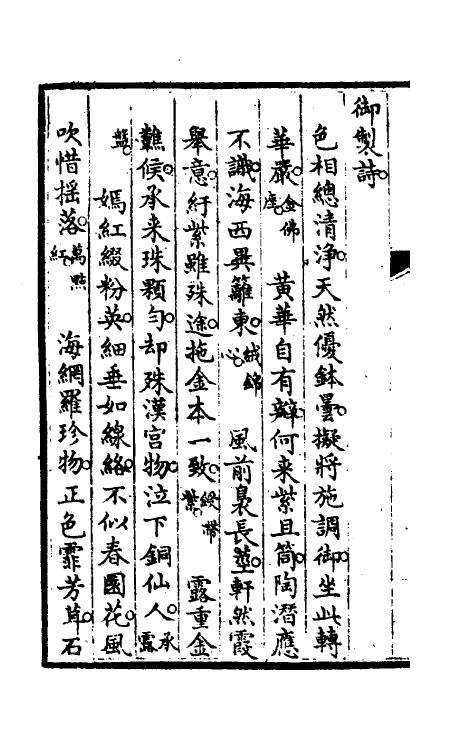 御製詩
色相總清淨天然優鉢曇擬將施調御坐此轉
華嚴金佛座 黃華自有辯何来紫且筒陶潛應
不識海西異籬東絨錦心 風前裊長莖軒然霞
舉意紆紫雖殊途拖金本一致綬帶紫 露重金
難候承来珠顆勻却殊漢宫物泣下銅仙人承露
盤 嫣紅綴粉英細垂如線絡不似春園花風
吹惜揺落萬點紅 海網羅珍物正色霏芳苴石